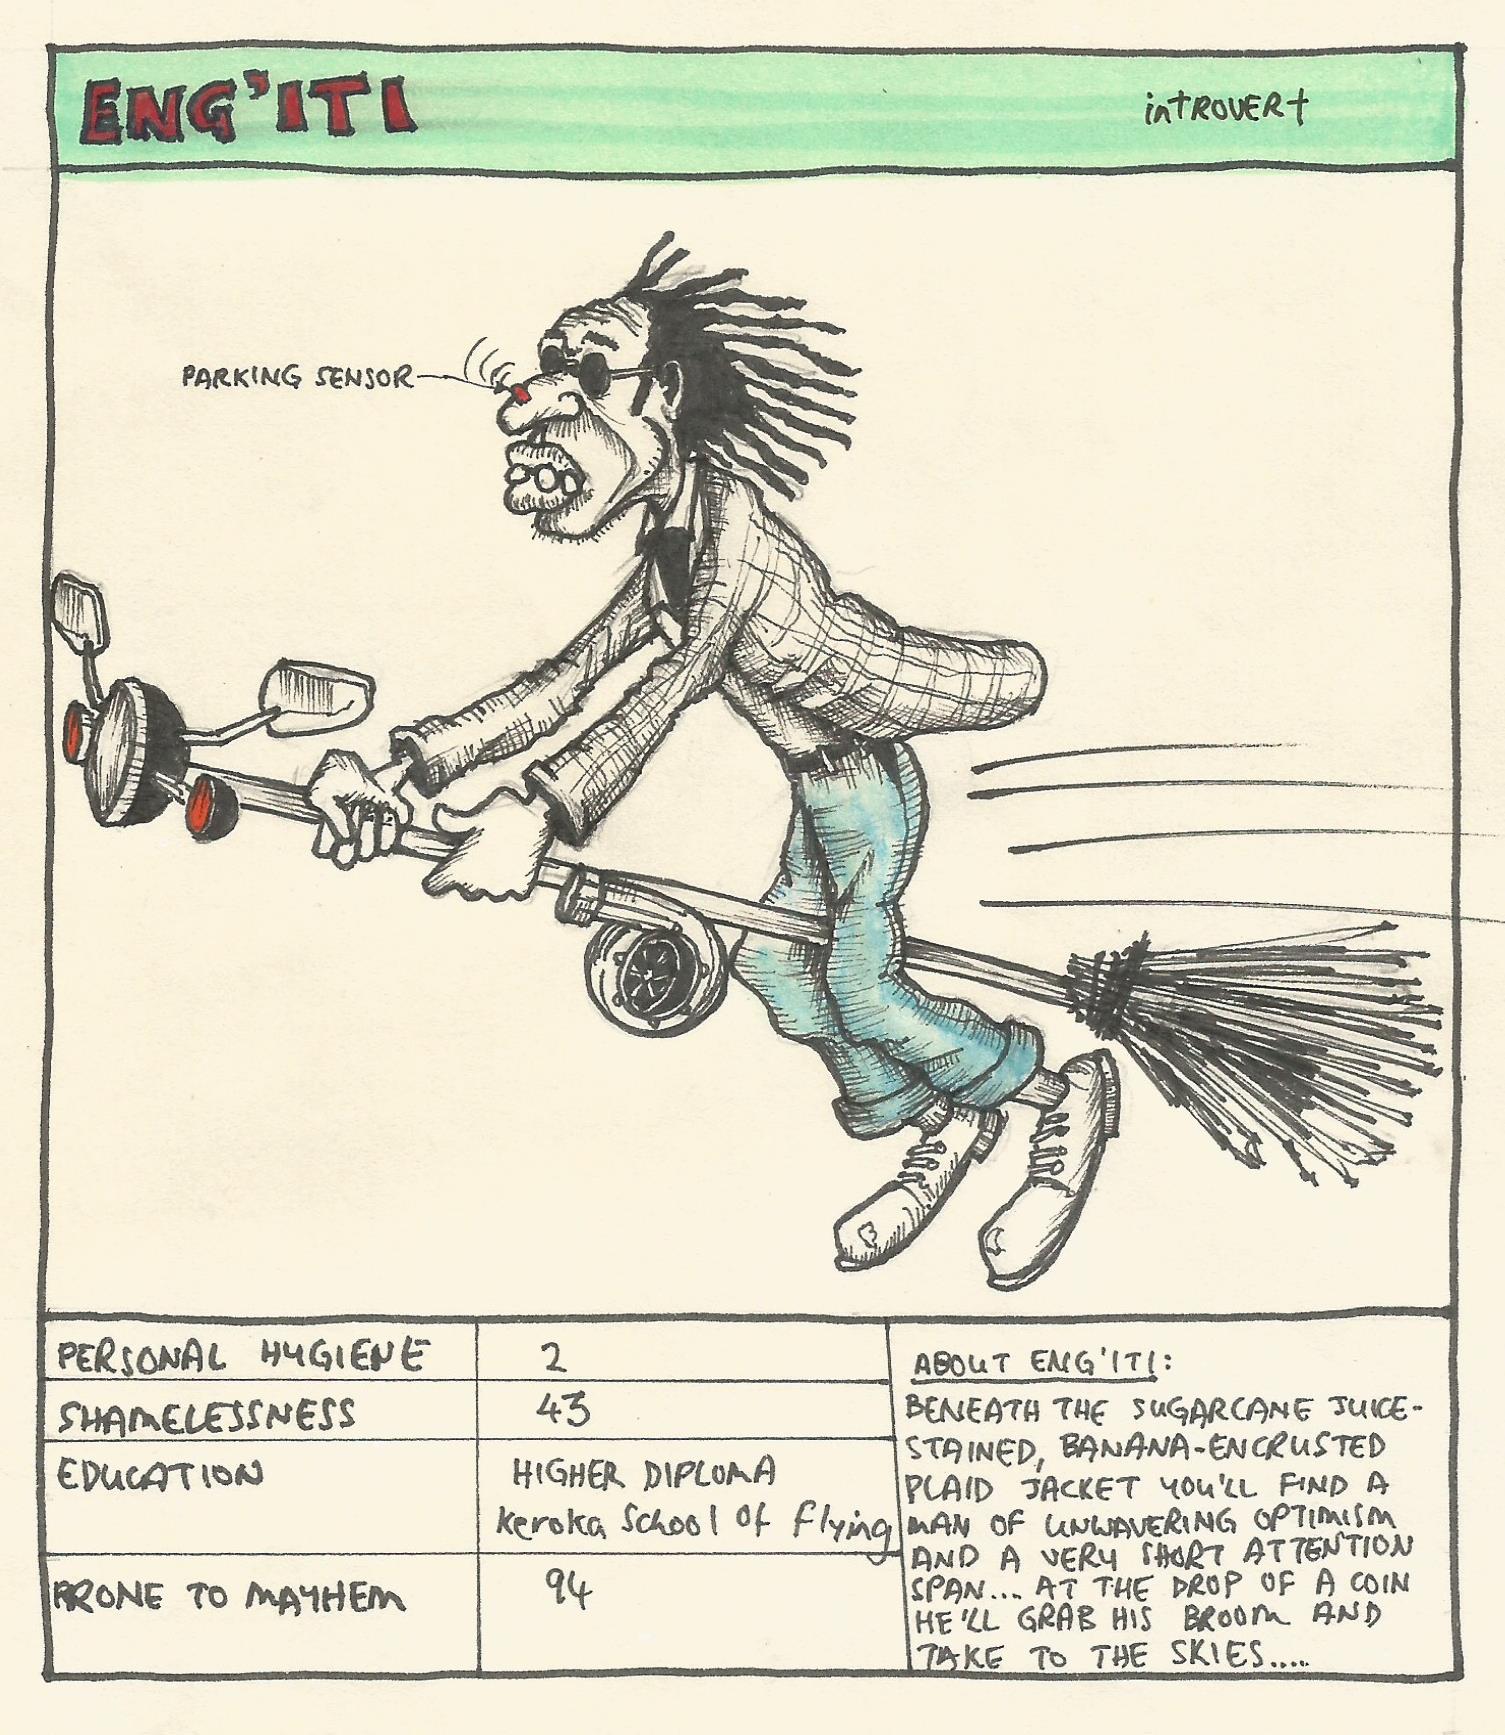 ENG'ITI
inTROVERt
PARKING SENSOR
PERSONAL HYGIENE
2
SHAMELESSNESS
43
EDUCATION
HIGHER DIPLOMA
Keroka School Of Flying
PRONE TO MAYHEM
94
ABOUT ENG'ITI:
BENEATH THE SUGARCANE JUICE-
STAINED, BANANA-ENCRUSTED
PLAID JACKET YOU'LL FIND A
MAN OF UNWAVERING OPTIMISM
AND A VERY SHORT ATTENTION
SPAN... AT THE DROP OF A COIN
HE'LL GRAB HIS BROOM AND
TAKE TO THE SKIES.....